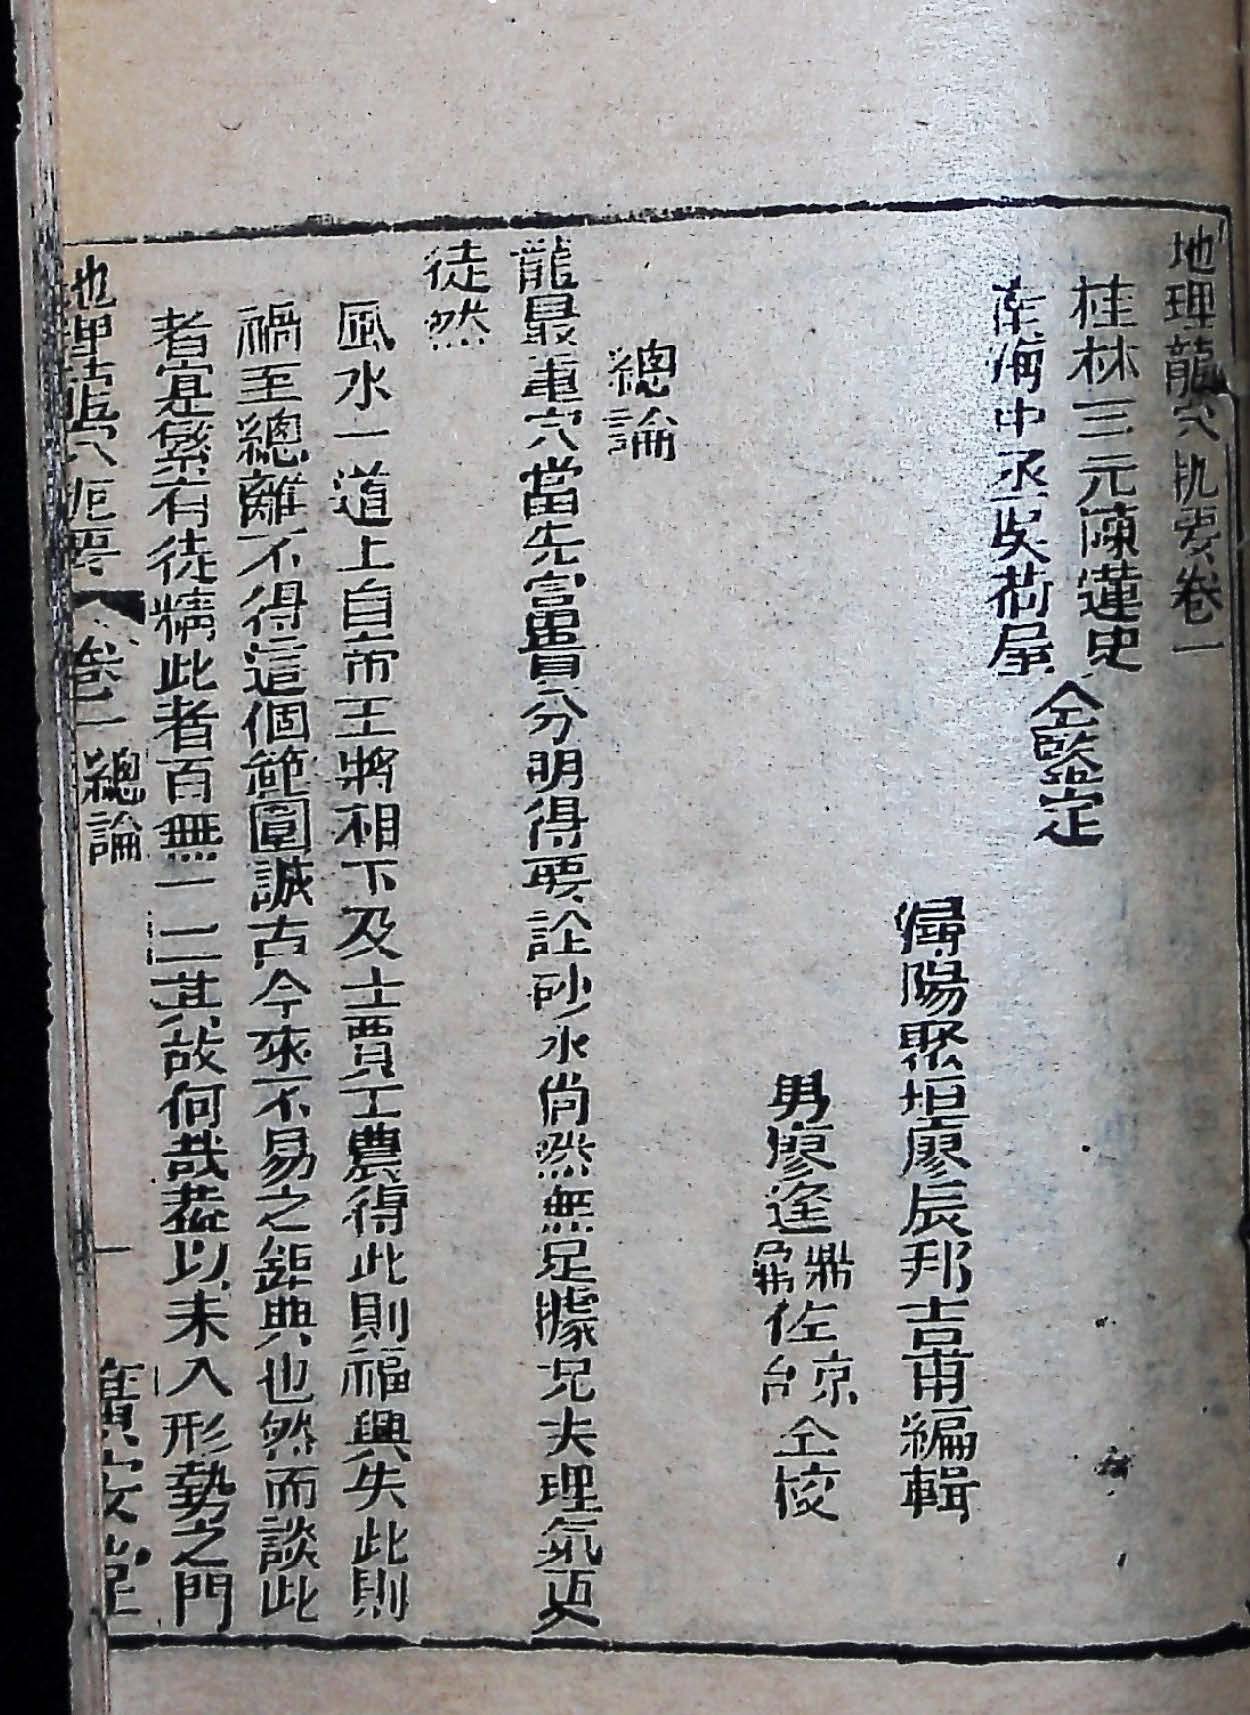 地理龍穴扤要卷一
桂林三元陳蓮史
南海中丞吳荷屋
仝鑒定
潯陽聚垣廖辰邦吉甫編輯
男廖逢鼎鼐佐京台仝校
總論
龍最重穴當先富貴分明得要訣砂水尚然無足據况夫理氣更
徒然
風水一道上自帝王將相下及士賈工農得此則福興失此則
禍至總離不得這個範圍誠古今來不易之鉅典也然而談此
者寔繁有徒精此者百無一二其故何哉葢以未入形勢之門
地理龍穴扤要 卷一 總論 一